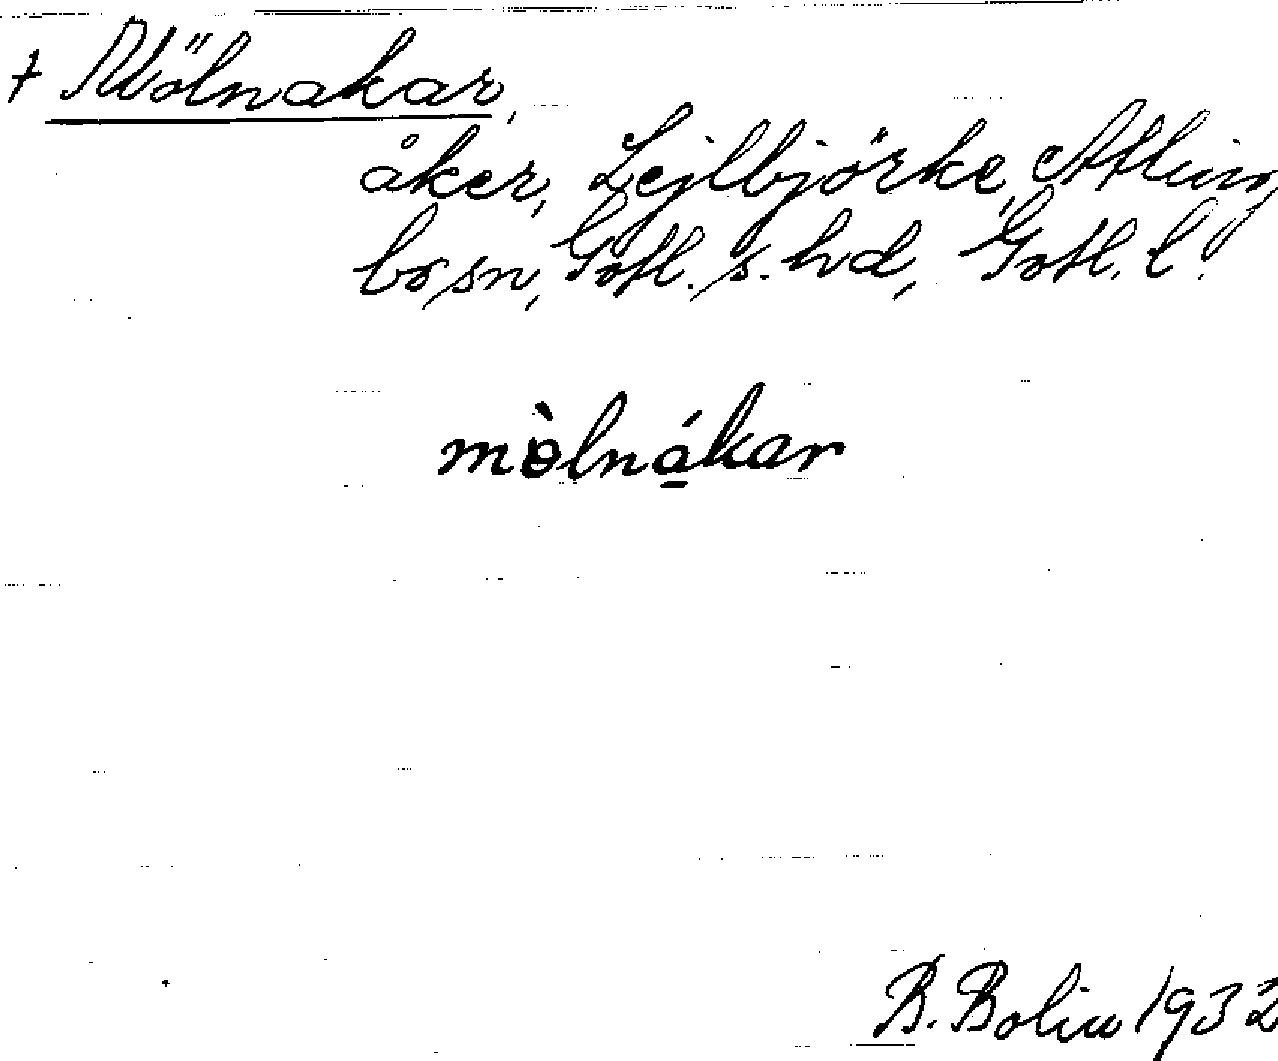 + Mölnakar,
åker, Lejlbjörke, Atling
bo sn, Gotl. s. hd, Gotl. l.
mölnákar
B. Bolin 1932